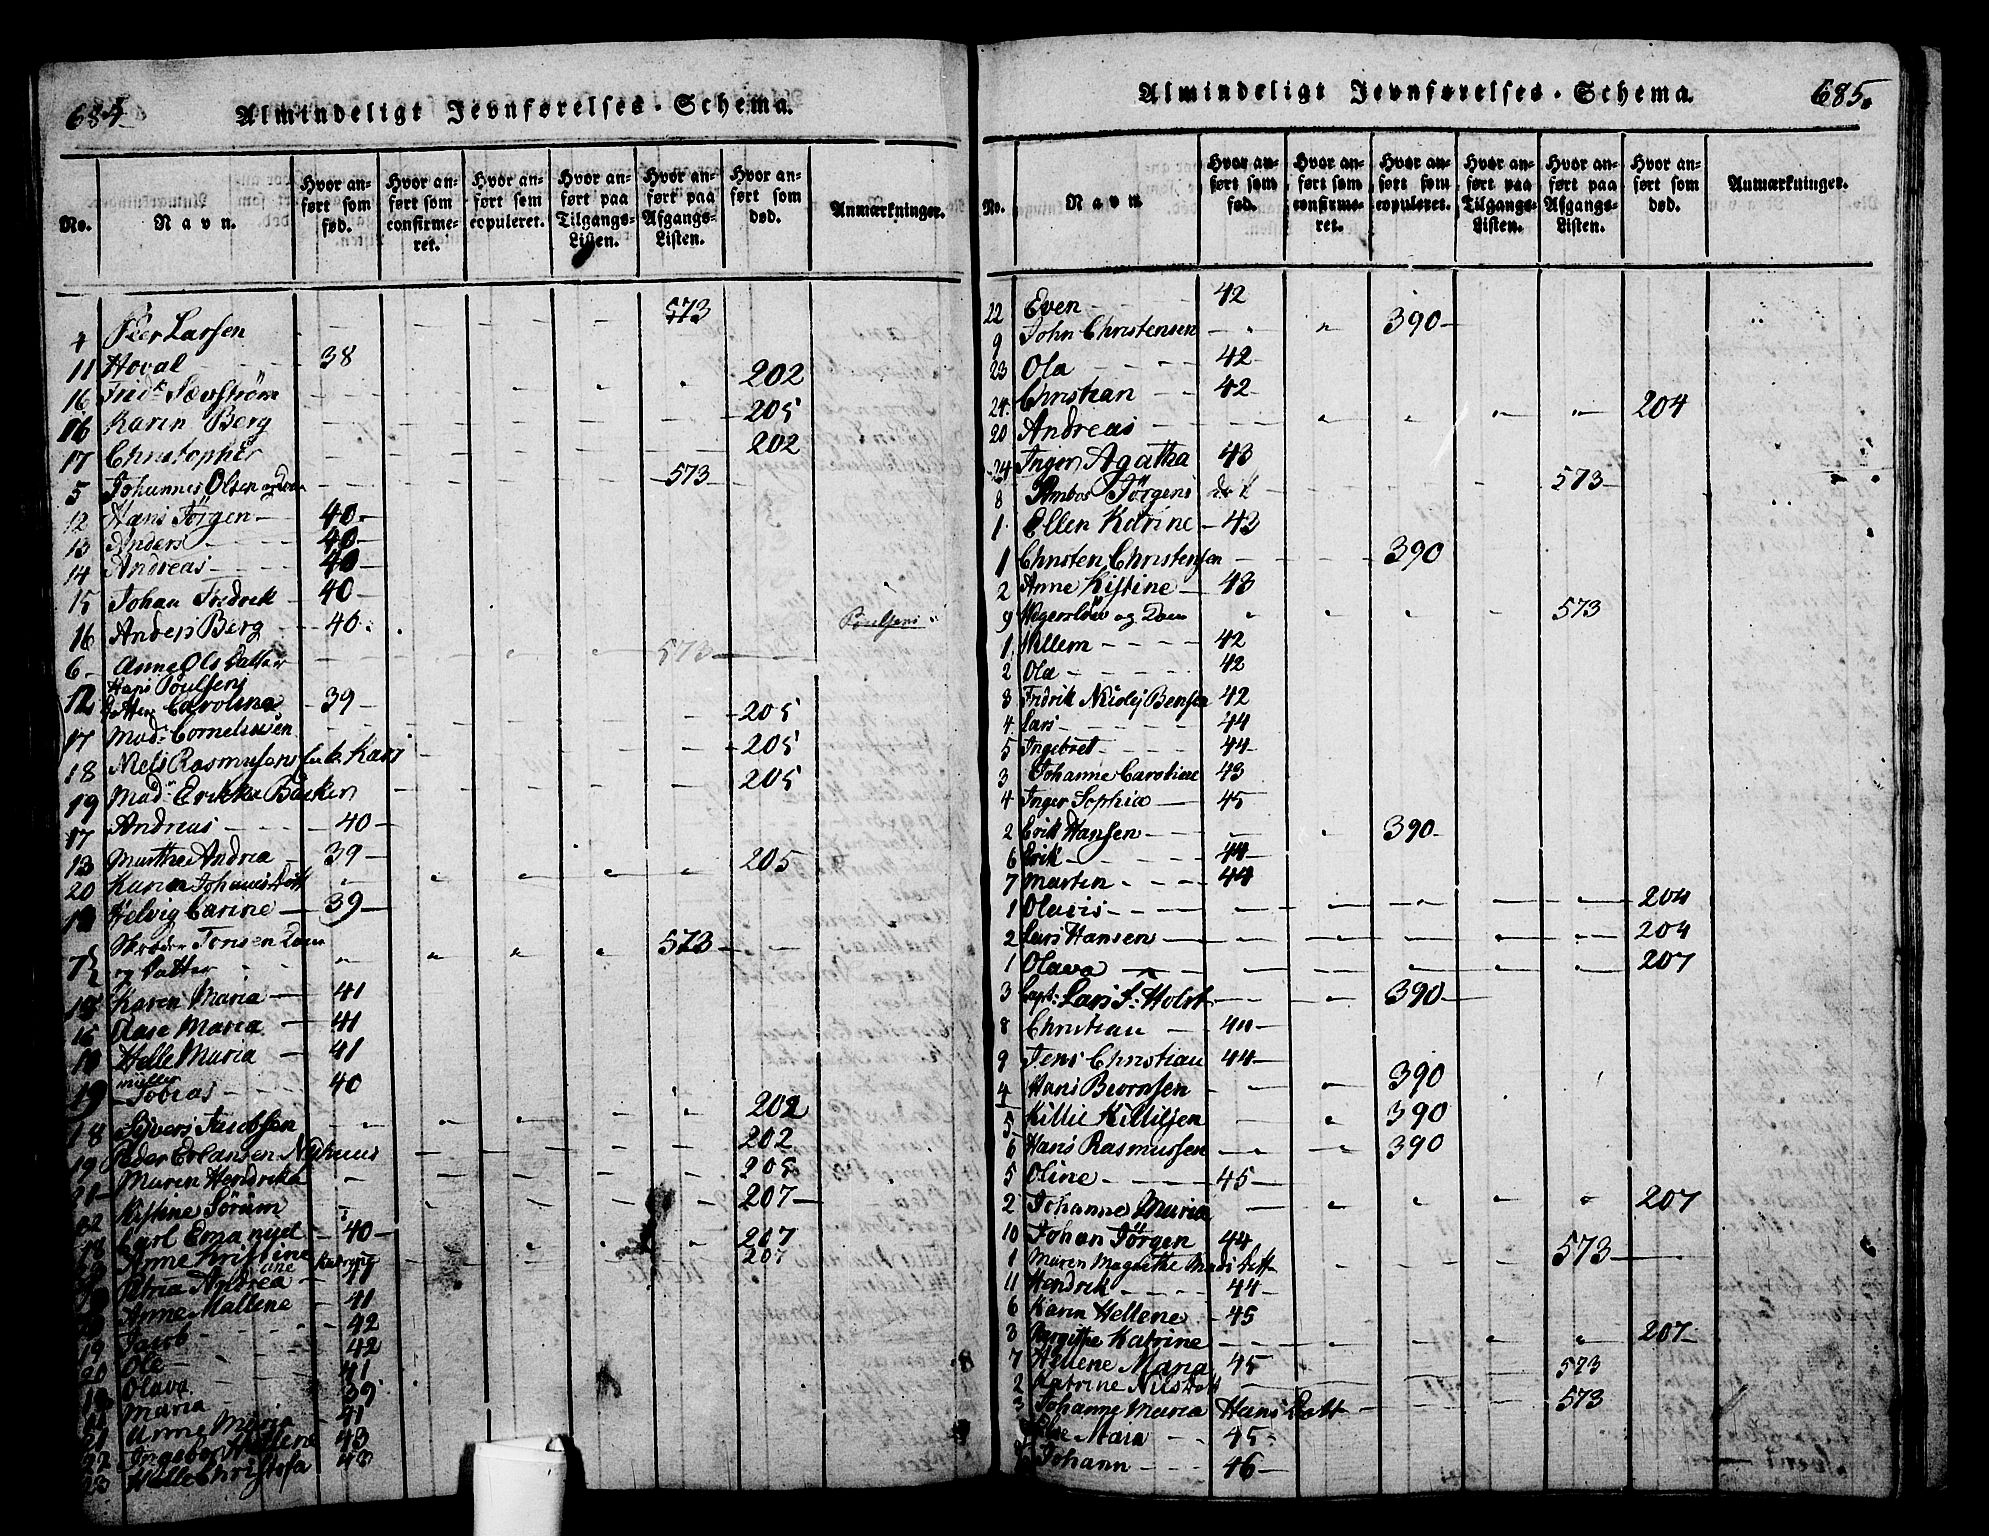 684
Almindeligt Jevnførelses-Schema.
No. Navn. Hvor anført som fød. Hvor anført som confirmeret. Hvor anført som copuleret. Hvor anført paa Tilgangs-Listen. Hvor anført paa Afgangs-Listen. Hvor anført som død. Anmærkninger.
4 Peer Larsen 573
11 Hoval 38
16 Fridk 202
16 Karen Berg 205
17 Christopher 202
5 Johannes Olsen og 573
12 Hans Jörgen 40
13 Anders 40
14 Andreas 40
15 Johan Fredrik 40
16 Anders Berg 40 Poulsens
6 Anne Ols Datter 573
Hans Poulsens
12 Carolina 39
17 Mad: Cornelisen 205
18 Niels Rasmusens Kari 205
19 Mad: Erikka Backen 205
17 Andreas 40
13 Marthe Andrea 39
20 Karen Johannis Dott 205
Helvig Carine 39
7 Jensen 573
og Datter
Karen Maria 41
Aase Maria 41
Helle Maria 41
19 Tobias 40
18 Sivers Jacobsen 202
19 Peder Erlansen Nyhuus 202
21 Maren Hendrika 205
Kistine Sörum 207
Carl Emanuel 40
Anne Kristine 207
Petria Andrea 41 207
Anne Mallene 41
19 Jacob 42
20 Ole 42
Olava 41
Maria 39
21 Anne Maria 41
22 Ingebor Hellene 43
23 Helle Christofa 43
Almindeligt Jevnførelses-Schema. 685.
No. Navn Hvor anført som fød. Hvor anført som confirmeret. Hvor anført som copuleret. Hvor anført paa Tilgangs-Listen. Hvor anført paa Afgangs-Listen. Hvor anført som død. Anmærkninger.
22 Even 42
9 John Christensen 390
23 Ola 42
24 Christian 42
20 Andreas 204
24 Inger Agatha 43
8 Jörgens 573
1 Ellen Katrine 42
1 Christen Christensen 390
2 Anne Kistine 43
9 og 573
1 Willem 42
2 Ola 42
3 Fridrik Nicolej Bensen 42
4 Lars 44
5 Ingebret 44
3 Johanne Caroline 43
4 Inger Sophia 45
2 Erik Hansen 390
6 Erik 44
7 Marten 44
1 Olavis 204
2 Lars Hansen 204
1 Olava 207
3 Capt: Lars F: Holst 390
8 Christian 44
9 Jens Christian 44
4 Hans Biørnsen 390
5 Killie Killiesen 390
6 Hans Rasmussen 390
5 Oline 45
2 Johannes Maria 207
10 Johan Jörgen 44
1 Maren Magrethe Mads Datt 573
11 Hendrik 44
6 Karen Hellene 45
3 Birgithe Katrine 207
7 Hellene Maria 45
2 Katrine Nilsdott 573
3 Johanne Maria Hans Datt 573
Else Mara 45
Johann 46